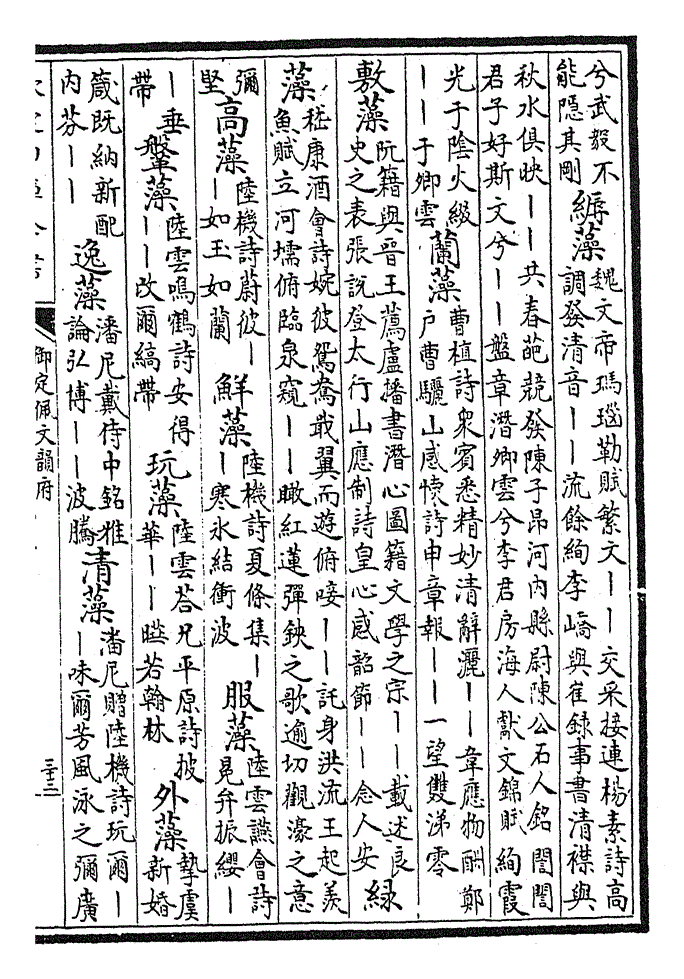 兮武毅不
能隱其剛
縟藻
魏文帝瑪瑙勒賦繁文——交采接連楊素詩高
調發清音——流餘絢李嶠與崔録事書清襟與
秋水俱映——共春葩競發陳子昂河内縣尉陳公石人銘誾誾
君子好斯文兮——盤章潛卿雲兮李君房海人獻文錦賦絢霞
光于陰火綴
——于卿雲
蘭藻
曹植詩衆賓悉精妙清辭灑——韋應物酬鄭
户曹驪山感懷詩申章報——一望雙涕零
敷藻
阮籍與晉王薦盧播書潛心圖籍文學之宗——載述良
史之表張說登太行山應制詩皇心感韶節——念人安
緑
藻
嵇康酒會詩婉彼鴛鴦戢翼而遊俯唼——託身洪流王起羡
魚賦立河壖俯臨泉窺——瞰紅蓮彈鋏之歌逾切觀濠之意
彌
堅
高藻
陸機詩蔚彼—
—如王如蘭
鮮藻
陸機詩夏條集—
—寒氷結衝波
服藻
陸雲讌會詩
冕弁振纓—
—垂
帶
鞶藻
陸雲鳴鶴詩安得
——改爾縞帶
玩藻
陸雲荅兄平原詩披
華——晤若翰林
外藻
摯虞
新婚
箴既納新配
内芬——
逸藻
潘尼戴侍中銘雅
論弘博——波騰
清藻
潘尼贈陸機詩玩爾—
—味爾芳風泳之彌廣
御定佩文韻府
三十三